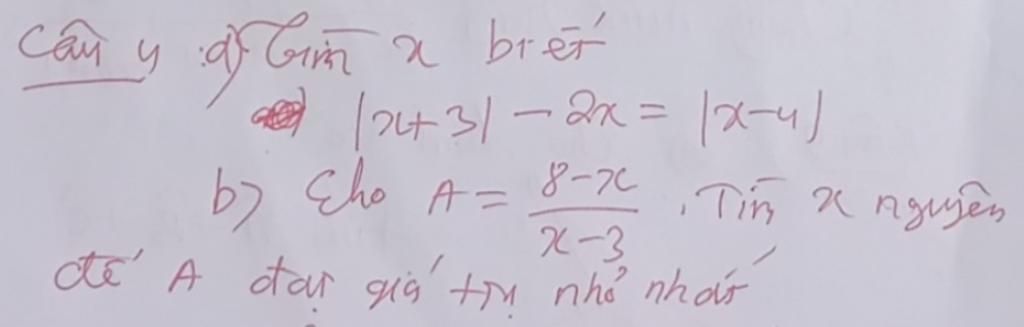 Câu 4: a) Tìm x biết
|x+3| - 2x = |x-4|
b) Cho A = \frac{8-x}{x-3}. Tìm x nguyên
để A đạt giá trị nhỏ nhất